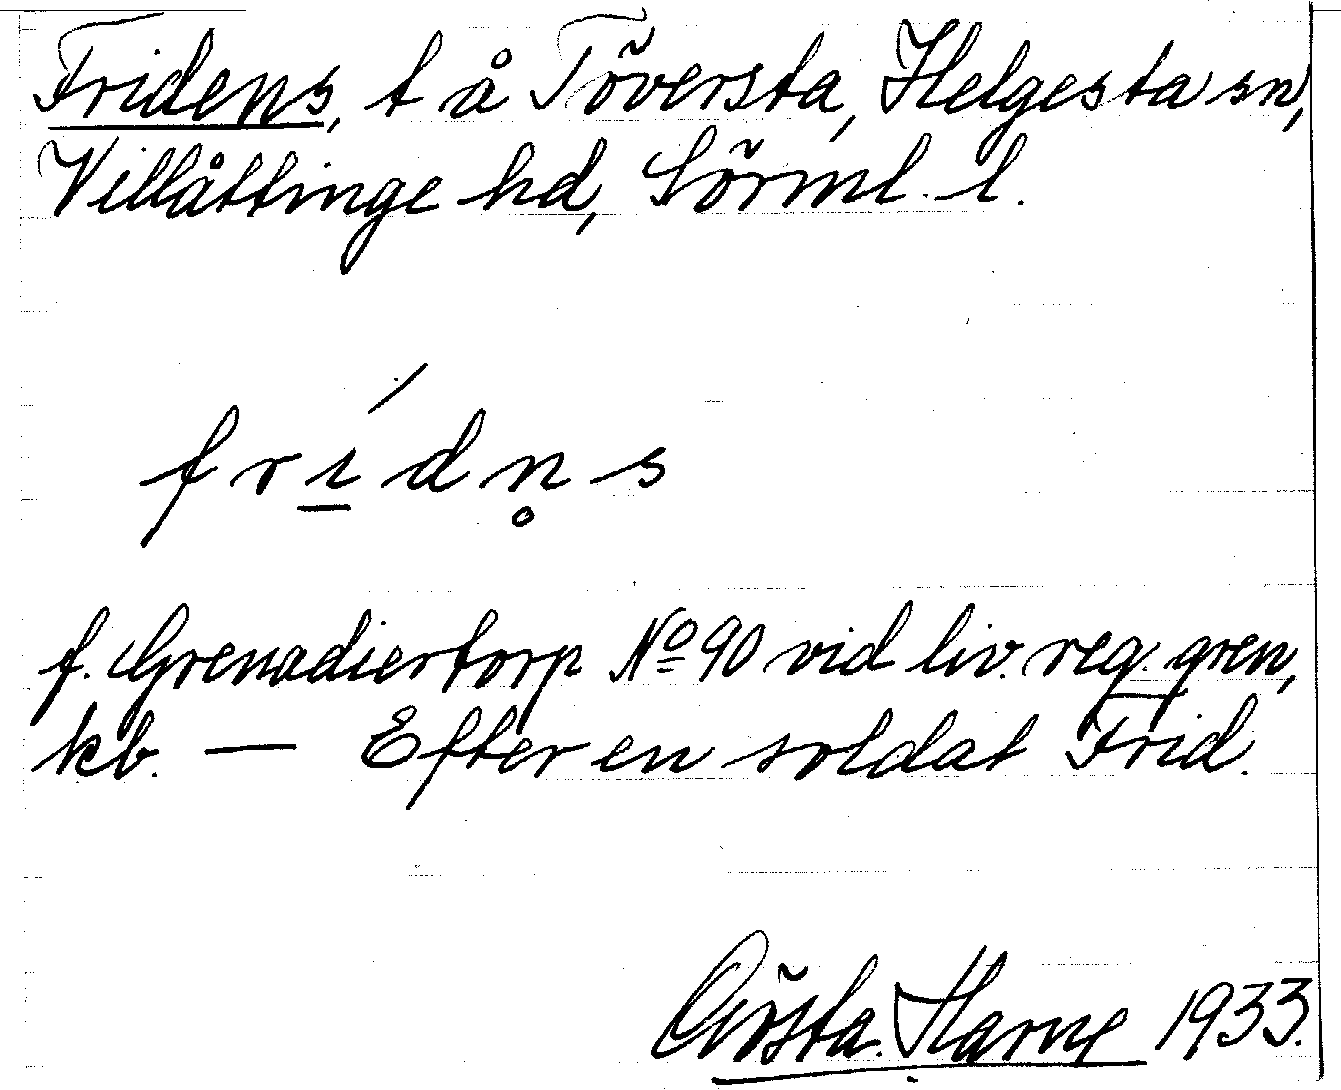 Fridens, t å Töversta, Helgesta sn,
Villåttinge hd, Sörml. l.
f r í̱ d n̥ s
f. Grenadiertorp No 90 vid liv. reg. gren,
kb. — Efter en soldat Frid.
Gösta Harne 1933.